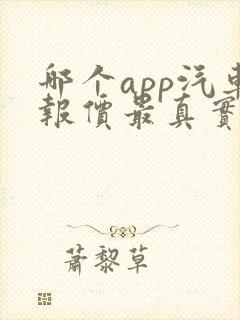 哪个app汽車
報價最真實
蕭黎草